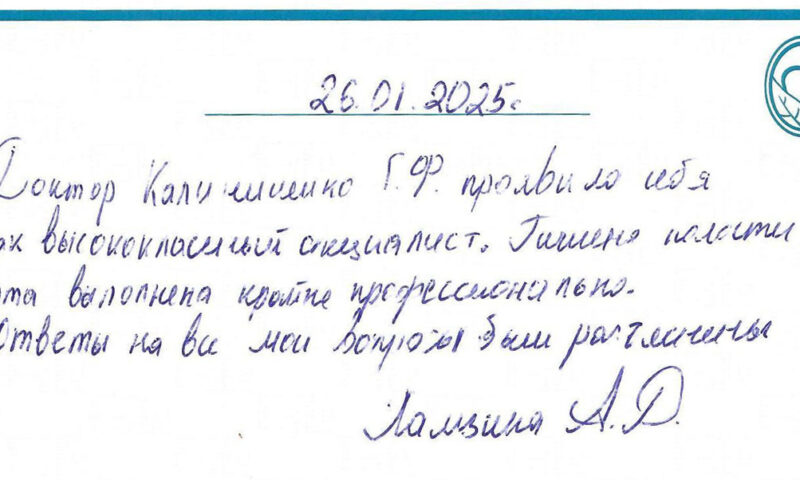 26.01.2025г
Доктор Калиниченко Г.Ф. проявила себя
ак высококлассный специалист. Гигиена полости
рта выполнена крайне профессионально.
Ответы на все мои вопросы были растличены
Ламзина А.Д.